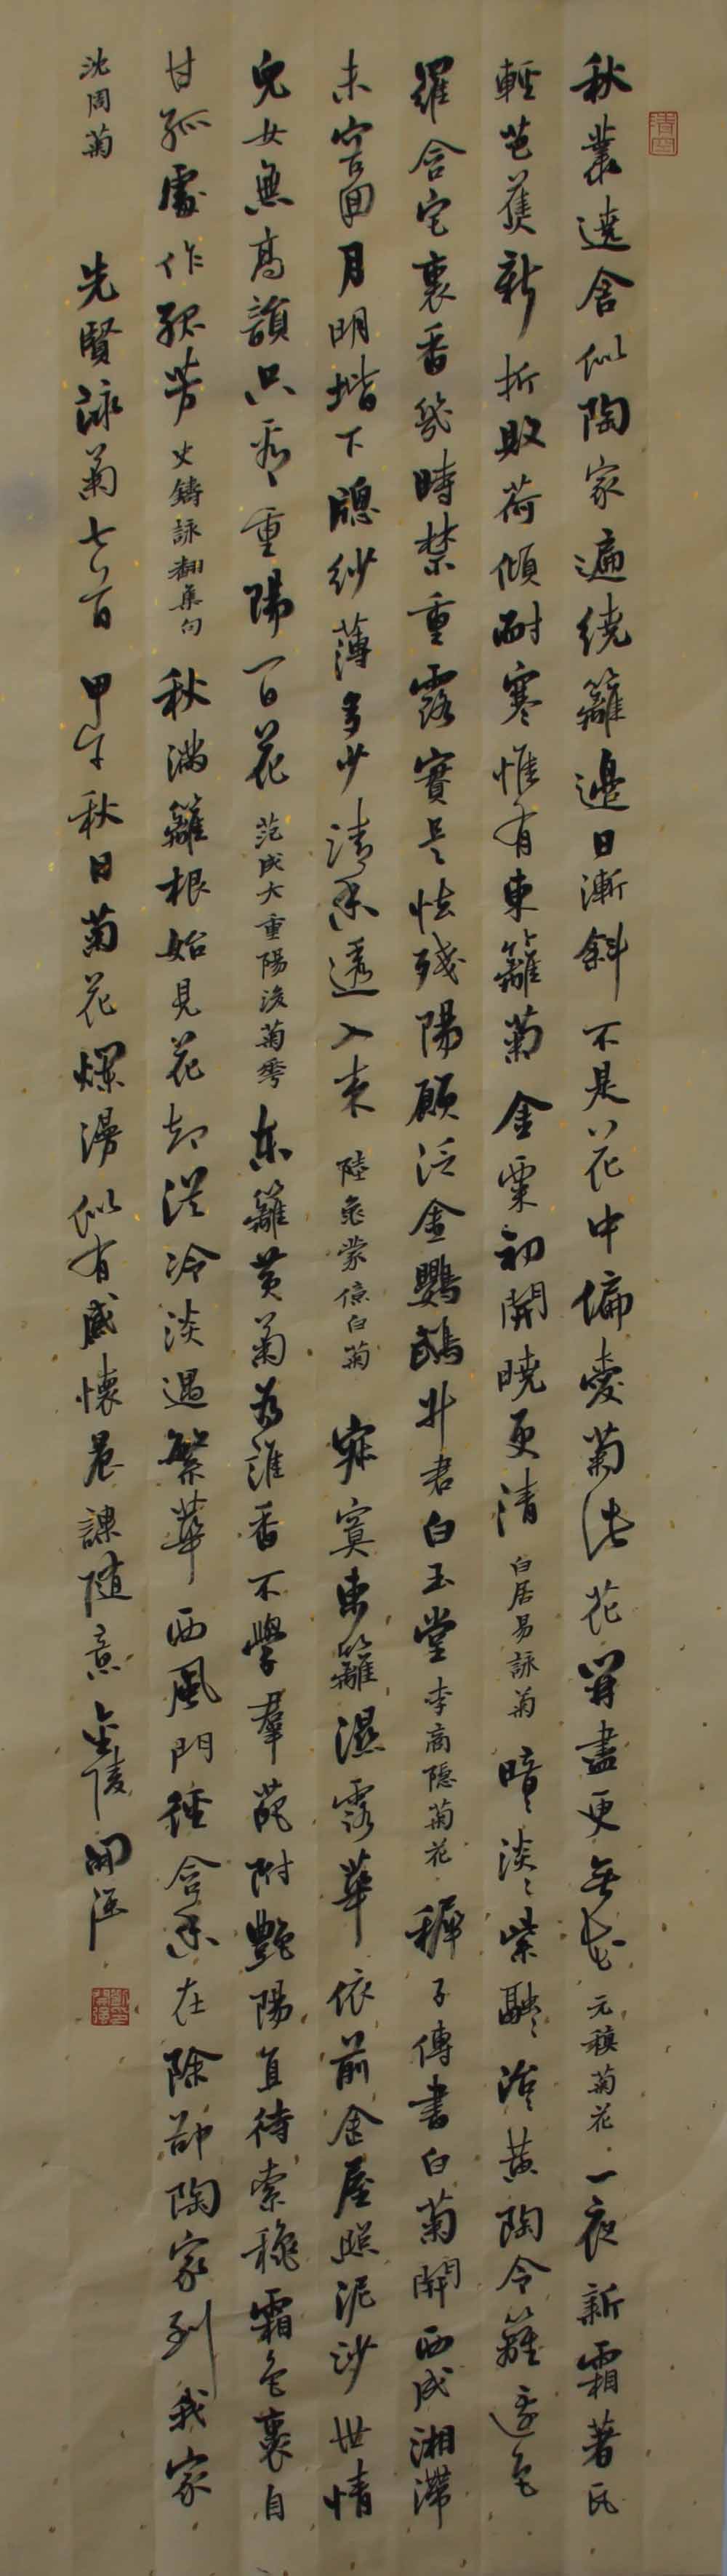 秋叢遶舍似陶家遍绕籬邊日漸斜不是花中偏愛菊此花開盡更無花 元稹菊花 一夜新霜著瓦
輕芭蕉新折敗荷傾耐寒惟有東籬菊金粟初開曉更清 白居易詠菊 暗〻淡〻紫融〻冶〻黄陶令籬邊色
羅含宅裏香幾時禁重露實是怯殘陽願泛金鸚鵡升君白玉堂 李商隱菊花 稚子傳書白菊開西成湘滞
未容回月明堦下牕紗薄多少清香透入來 陸龜蒙憶白菊 寂寞東籬濕露華依前金屋照泥沙世情
兒女無高韻只看重陽一日花 范成大重陽後菊花 东籬黄菊為誰香不學羣葩附艷陽直待索秋霜色裏自
甘孤處作孤芳 史鑄詠菊集句 秋滿籬根始見花却從冷淡過繁華西風門徑含香在除却陶家到我家
沈周菊 先賢詠菊七首 甲午秋日菊花爛漫似有感懷晨課随意金陵開